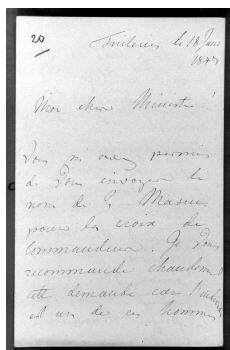 20
Tuileries le 18 Juin
1847
Mon cher Ministre !
Vous m'avez permis
de Vous envoyer le
nom de
pour la croix de
Commandeur. Je Vous
recommande chaudemt
cette demande car l'
est un de ces hommes